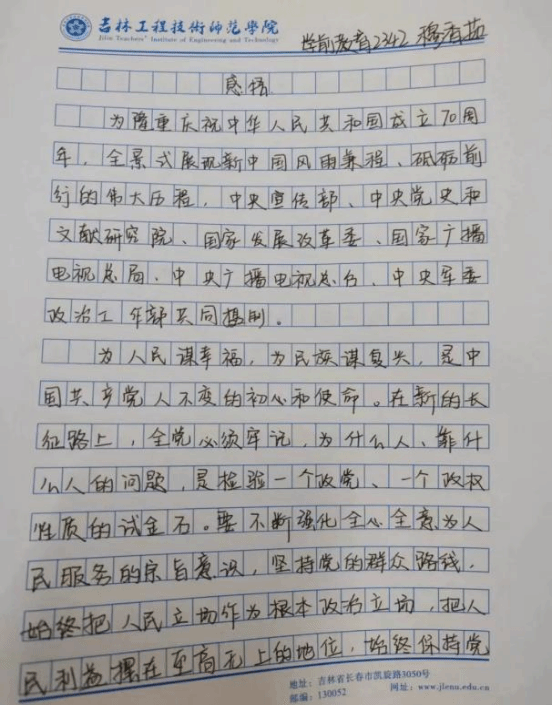 吉林工程技術师范學院
Jilin Teachers' Institute of Engineering and Technology
学前教育2342 穆清茹
感悟
为隆重庆祝中华人民共和国成立70周
年，全景式展现新中国风雨兼程、砥砺前
行的伟大历程，中央宣传部、中央党史和
文献研究院、国家发展改革委、国家广播
电视总局、中央广播电视总台、中央军委
政治工作部共同摄制。
为人民谋幸福，为民族谋复兴，是中
国共产党人不变的初心和使命。在新的长
征路上，全党必须牢记，为什么人、靠什
么人的问题，是检验一个政党、一个政权
性质的试金石。要不断强化全心全意为人
民服务的宗旨意识，坚持党的群众路线，
始终把人民立场作为根本政治立场，把人
民利益摆在至高无上的地位，始终保持党
地址：吉林省长春市凯旋路3050号
邮编：130052 网址：www.jlenu.edu.cn